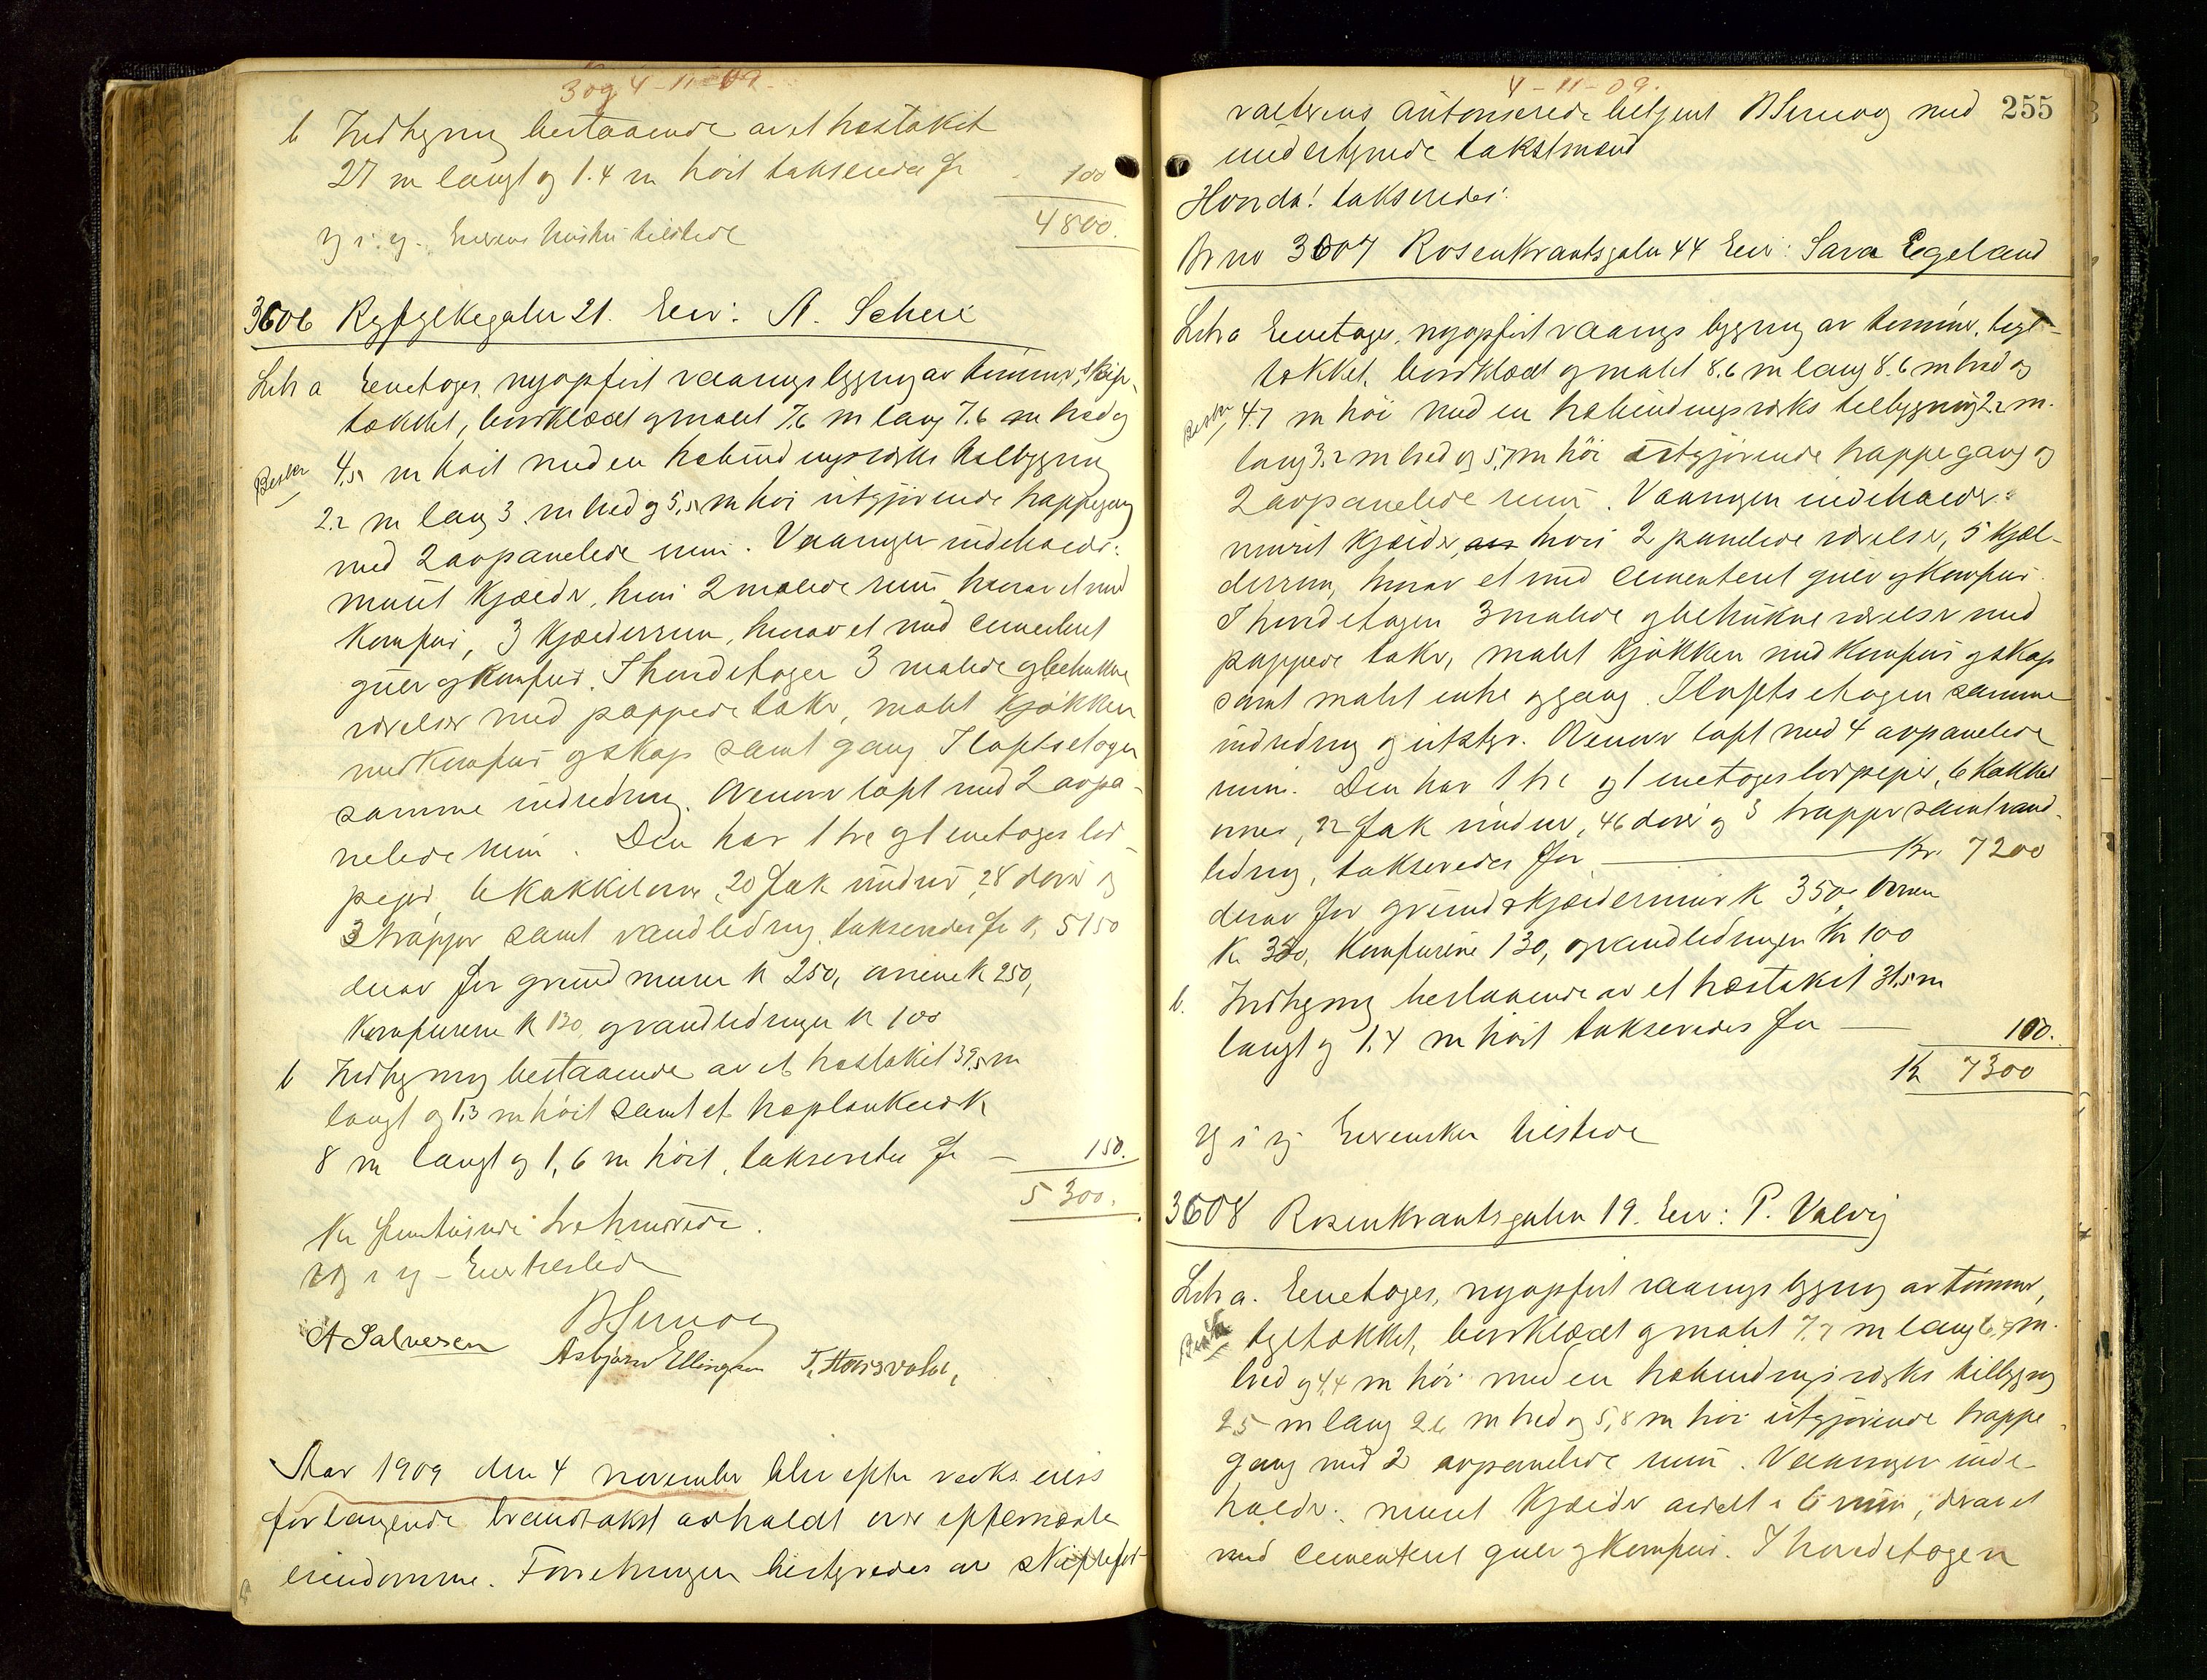 3 og 4-11-09.
b Indhegning bestaaende av et træstakit
27 m langt og 1.4 m høit takseredes for - 100
4800.
Eierens hustru tilstede
3606 Ryfylkegaten 21. Eier: A. Scheie
Litr a Eenetages, nyopført vaaningsbygning av tømmer, skifer-
tækket, bordklædt og malet 7.6 m lang 7.6 m bred og
4,5 m høit med en træbindingsværks tilbygning
2.2 m lang 3 m bred og 5,5 m høi utgjørende trappegang
med 2 avpanelede rum. Vaaningen indeholder:
muret kjælder, hvori 2 malede rum hvorav et med
komfur, 3 kjælderrum, hvorav et med cementert
gulv og komfur. I hovedetagen 3 malede og betrukne
værelser med pappede take, malet kjøkken
med komfur og skap samt gang. I loftsetagen
samme indredning. Ovenover loft med 2 avpa-
nelede rum. Den har 1 tre og 1 enetages lod-
pipe, 6 kakkelovne, 20 fak vinduer, 28 dører og
3 trapper samt vandledning, takseredes for k. 5150
derav for grundmuren k 250, ovnene k 250,
komfurene k 130, og vandledningen k 100
b Indhegning bestaaende av et træstakit 39,5 m
langt og 1,3 m høit samt et træplankeværk
8 m langt og 1,6 m høit, takseredes for - 150.
5300.
Kr femtusinde trehundrede.
Eier tilstede
A Salvesen
Asbjørn Ellingsen
Aar 1909 den 4 november blev efter vedk. eiers
forlangende brandtakst avholdt over efternævnte
eiendomme. Forretningen bestyredes av skiftefor-
4-11-09.
255
valterens autoriserede betjent med
undertegnede takstmænd
Hvorda! takseredes:
Br no 3607 Rosenkrantsgaten 44 Eier: Sara Egeland
Litr a Eenetages, nyopført vaaningsbygning av tømmer, tegl-
tækket, bordklædt og malet 8.6 m lang 8.6 m bred og
4.7 m høi med en træbindingsværks tilbygning 2.2 m.
lang 3.2 m bred og 5,7 m høi utgjørende trappegang og
2 avpanelede rum. Vaaningen indeholder:
muret kjælder, hvori 2 panelede værelser, 5 kjæl-
derrum, hvorav et med cementert gulv og komfur.
I hovedetagen 3 malede og betrukne værelser med
pappede take, malet kjøkken med komfur og skap
samt malet entre og gang. I loftsetagen samme
indredning og utstyr. Ovenover loft med 4 avpanelede
rum. Den har 1 tre og 1 enetages lodpipe, 6 kakkel
ovner, 22 fak vinduer, 46 dører og 3 trapper samt vand-
ledning, takseredes for Kr. 7200
derav for grund & kjældermur k 350, ovnene
k. 350, komfurene 130, og vandledningen kr 100
b. Indhegning bestaaende av et træstakit 31,5 m
langt og 1.4 m høit takseredes for 100.
Kr 7300
Eiersken tilstede
3608 Rosenkrantsgaten 19. Eier: P. Valvig
Litr a. Eenetages, nyopført vaaningsbygning av tømmer,
tegltækket, bordklædt og malet 7,7 m lang 6,9 m.
bred og 4,4 m høi med en træbindingsværks tilbygning
2,5 m lang 2,6 m bred og 5,8 m høi utgjørende trappe-
gang med 2 avpanelede rum. Vaaningen inde-
holder: muret kjælder avdelt i 6 rum, derav et
med cementert gulv og komfur. I hovedetagen